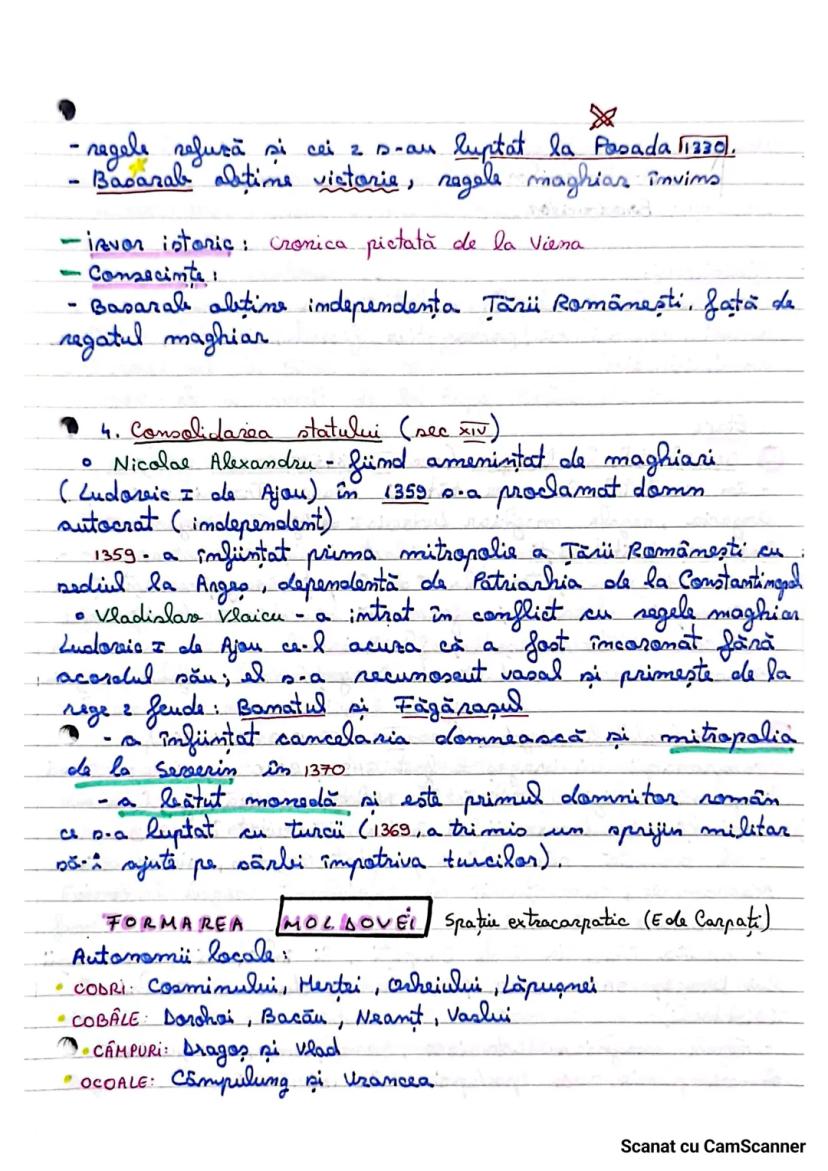 - regele refuză și cei 2 s-au luptat la Posada 1330.
- Basarab obține victorie, regele maghiar învins
- izvor istoric: Cronica pictată de la Viena
- Consecințe:
- Basarab obține independența Țării Românești, față de
regatul maghiar
4. Consolidarea statului (sec XIV)
Nicolae Alexandru - fiind amenințat de maghiari
(Ludovic I de Ajou) în 1359 s-a proclamat domn
autocrat (independent)
1359 - a înființat prima mitropolie a Țării Românești cu
sediul la Argeș, dependentă de Patriarhia de la Constantinopol
Vladislav Vlaicu - a intrat în conflict cu regele maghiar
Ludovic I de Ajou ce-l acuza că a fost încoronat fără
acordul său; el s-a recunoscut vasal și primește de la
rege 2 feude: Banatul și Făgărașul
- a înființat cancelaria domnească și mitropolia
de la Severin în 1370
- a bătut monedă și este primul domnitor român
ce s-a luptat cu turcii (1369, a trimis un sprijin militar
să-i ajute pe sârbi împotriva turcilor).
FORMAREA MOLDOVEI Spațiu extracarpatic (E de Carpați)
Autonomii locale:
CODRI: Cosminului, Herței, Orheiului, Lăpușnei
COBÂLE: Dorohoi, Bacău, Neamț, Vaslui
CÂMPURI: Dragoș și Vlad
OCOALE: Câmpulung și Vrancea
Scanat cu CamScanner